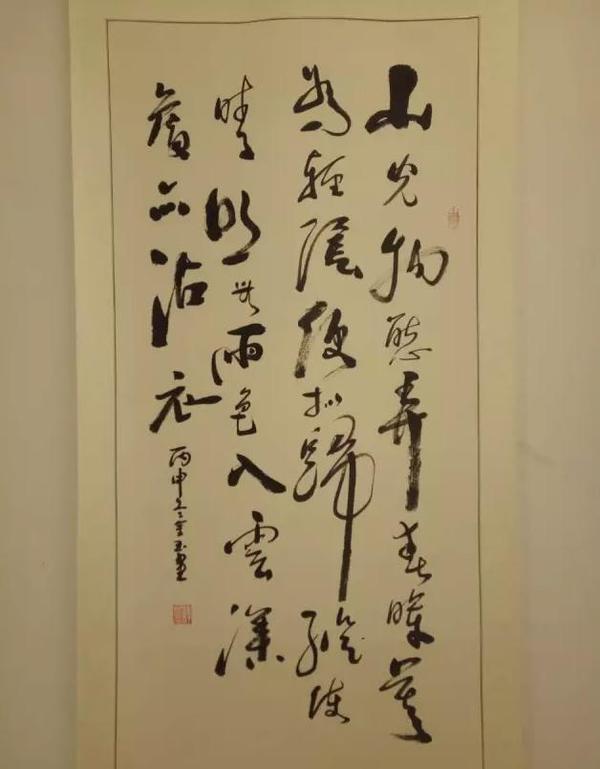 山光物態弄春暉莫
為輕陰便拟歸縱使
晴明無雨色入雲深
處亦沾衣
丙申冬